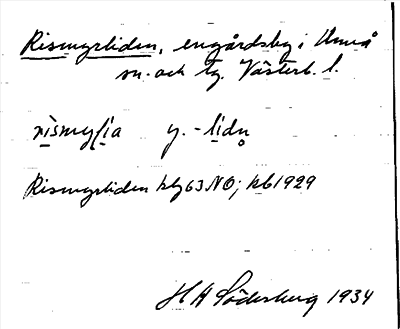 Rismyrliden, engårdsby i Umeå
sn. och tg. Västerb. l.
rismyṛḷia y. -lidn̥
Rismyrliden kbl 63 NO; kb 1929
H A Söderberg 1934